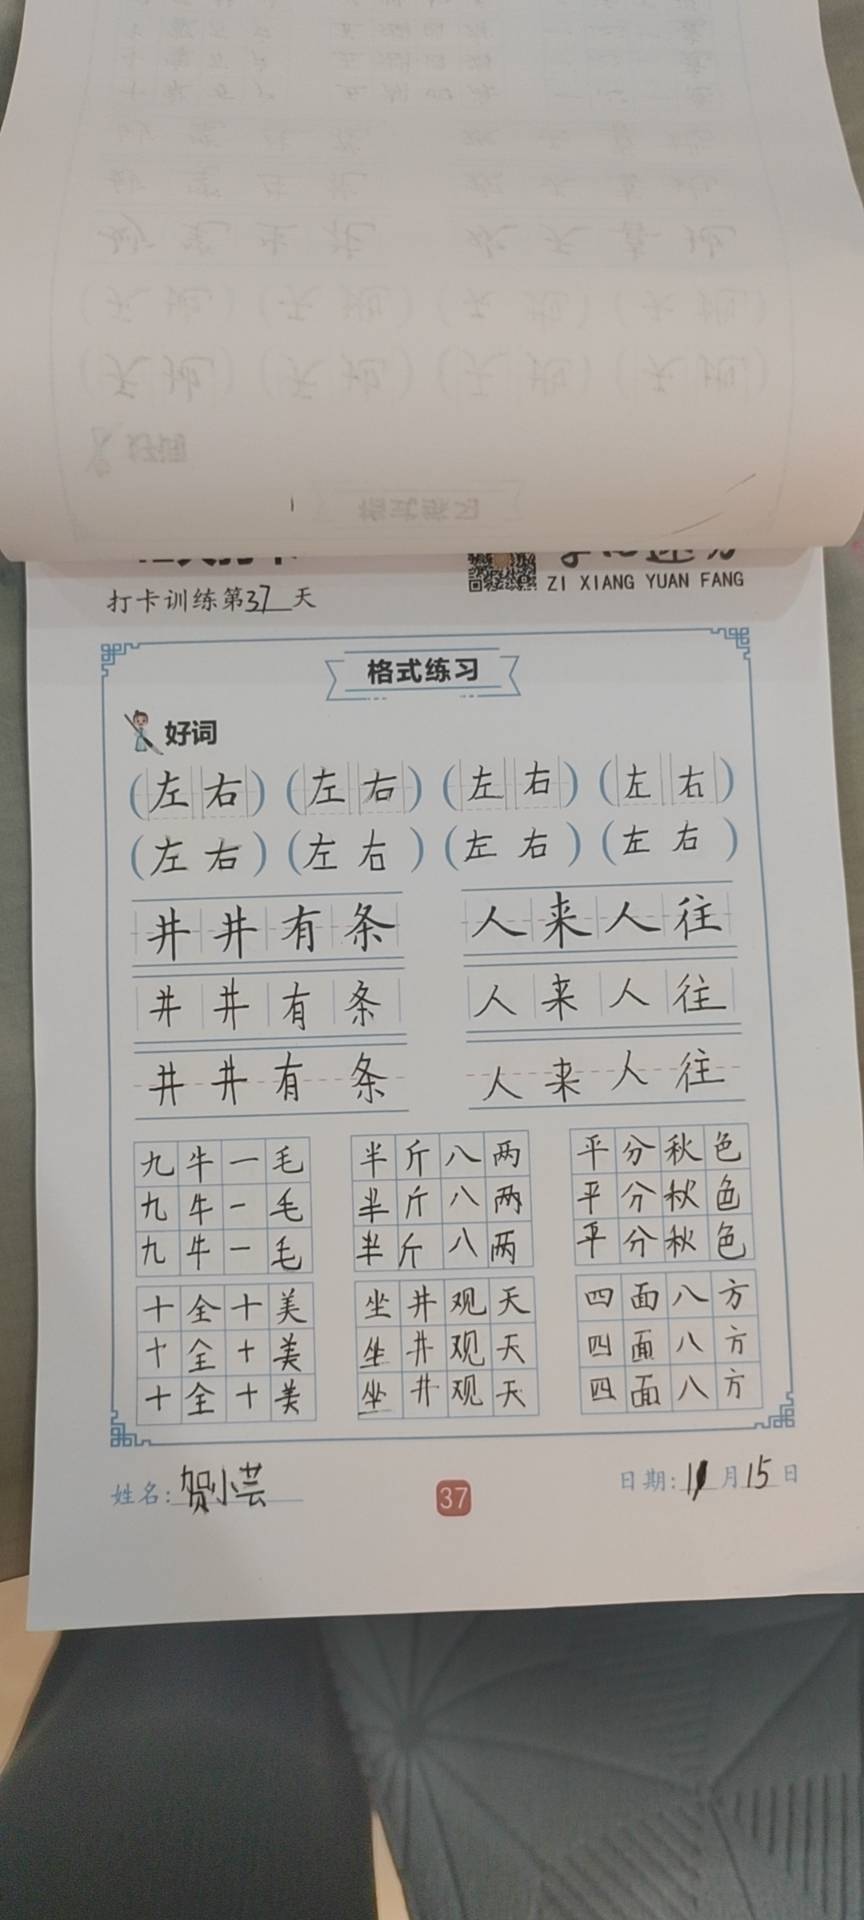 打卡训练第37天
ZI XIANG YUAN FANG
格式练习
好词
(左右)(左右)(左右)(左右)
(左右)(左右)(左右)(左右)
井井有条 人来人往
井井有条 人来人往
井井有条 人来人往
九牛一毛 半斤八两 平分秋色
九牛一毛 半斤八两 平分秋色
九牛一毛 半斤八两 平分秋色
十全十美 坐井观天 四面八方
十全十美 坐井观天 四面八方
十全十美 坐井观天 四面八方
姓名:贺小芸 37 日期:11月15日